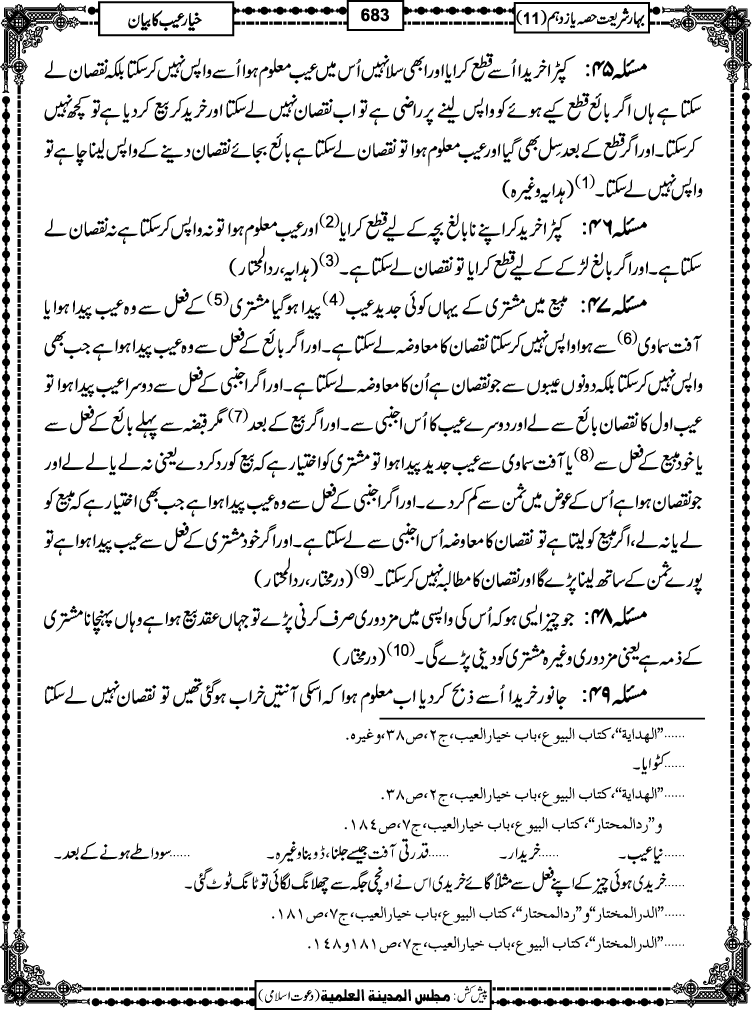 بہارِ شریعت حصہ یازدہم (11)
683
خیار عیب کا بیان
مسئلہ ۴۵: کپڑا خریدا اُسے قطع کرایا اور ابھی سلا نہیں اُس میں عیب معلوم ہوا اُسے واپس نہیں کرسکتا بلکہ نقصان لے
سکتا ہے ہاں اگر بائع قطع کیے ہوئے کو واپس لینے پر راضی ہے تو اب نقصان نہیں لے سکتا اور خرید کر بیع کردیا ہے تو کچھ نہیں
کرسکتا۔ اور اگر قطع کے بعد سِل بھی گیا اور عیب معلوم ہوا تو نقصان لے سکتا ہے بائع بجائے نقصان دینے کے واپس لینا چاہے تو
واپس نہیں لے سکتا۔ (1) (ہدایہ وغیرہ)
مسئلہ ۴۶: کپڑا خرید کر اپنے نابالغ بچہ کے لیے قطع کرایا (2) اور عیب معلوم ہوا تو نہ واپس کرسکتا ہے نہ نقصان لے
سکتا ہے۔ اور اگر بالغ لڑکے کے لیے قطع کرایا تو نقصان لے سکتا ہے۔ (3) (ہدایہ، ردالمحتار)
مسئلہ ۴۷: مبیع میں مشتری کے یہاں کوئی جدید عیب (4) پیدا ہوگیا مشتری (5) کے فعل سے وہ عیب پیدا ہوا یا
آفت سماوی (6) سے ہوا واپس نہیں کرسکتا نقصان کا معاوضہ لے سکتا ہے۔ اور اگر بائع کے فعل سے وہ عیب پیدا ہوا ہے جب بھی
واپس نہیں کرسکتا بلکہ دونوں عیبوں سے جو نقصان ہے اُن کا معاوضہ لے سکتا ہے۔ اور اگر اجنبی کے فعل سے دوسرا عیب پیدا ہوا تو
عیب اول کا نقصان بائع سے لے اور دوسرے عیب کا اُس اجنبی سے۔ اور اگر بیع کے بعد (7) مگر قبضہ سے پہلے بائع کے فعل سے
یا خود مبیع کے فعل سے (8) یا آفت سماوی سے عیب جدید پیدا ہوا تو مشتری کو اختیار ہے کہ بیع کو رد کردے یعنی نہ لے یا لے لے اور
جو نقصان ہوا ہے اُس کے عوض میں ثمن سے کم کردے۔ اور اگر اجنبی کے فعل سے وہ عیب پیدا ہوا ہے جب بھی اختیار ہے کہ مبیع کو
لے یا نہ لے، اگر مبیع کو لیتا ہے تو نقصان کا معاوضہ اُس اجنبی سے لے سکتا ہے۔ اور اگر خود مشتری کے فعل سے عیب پیدا ہوا ہے تو
پورے ثمن کے ساتھ لینا پڑے گا اور نقصان کا مطالبہ نہیں کرسکتا۔ (9) (درمختار، ردالمحتار)
مسئلہ ۴۸: جو چیز ایسی ہو کہ اُس کی واپسی میں مزدوری صرف کرنی پڑے تو جہاں عقد بیع ہوا ہے وہاں پہنچانا مشتری
کے ذمہ ہے یعنی مزدوری وغیرہ مشتری کو دینی پڑے گی۔ (10) (درمختار)
مسئلہ ۴۹: جانور خریدا اُسے ذبح کردیا اب معلوم ہوا کہ اسکی آنتیں خراب ہوگئی تھیں تو نقصان نہیں لے سکتا
......”الهداية“، کتاب البيوع، باب خيار العيب، ج٢، ص٣٨، وغيره.
......کٹوایا۔
......”الهداية“، کتاب البيوع، باب خيار العيب، ج٢، ص٣٨.
و”ردالمحتار“، کتاب البيوع، باب خيار العيب، ج٧، ص١٨٤.
......نیا عیب۔ ......خریدار۔ ......قدرتی آفت جیسے جلنا، ڈوبنا وغیرہ۔ ......سودا طے ہونے کے بعد۔
......خریدی ہوئی چیز کے اپنے فعل سے مثلاً گائے خریدی اس نے اونچی جگہ سے چھلانگ لگائی تو ٹانگ ٹوٹ گئی۔
......”الدرالمختار“ و”ردالمحتار“، کتاب البيوع، باب خيار العيب، ج٧، ص١٨١.
......”الدرالمختار“، کتاب البيوع، باب خيار العيب، ج٧، ص١٨١ و١٤٨.
پیش کش: مجلس المدينة العلمية (دعوت اسلامی)